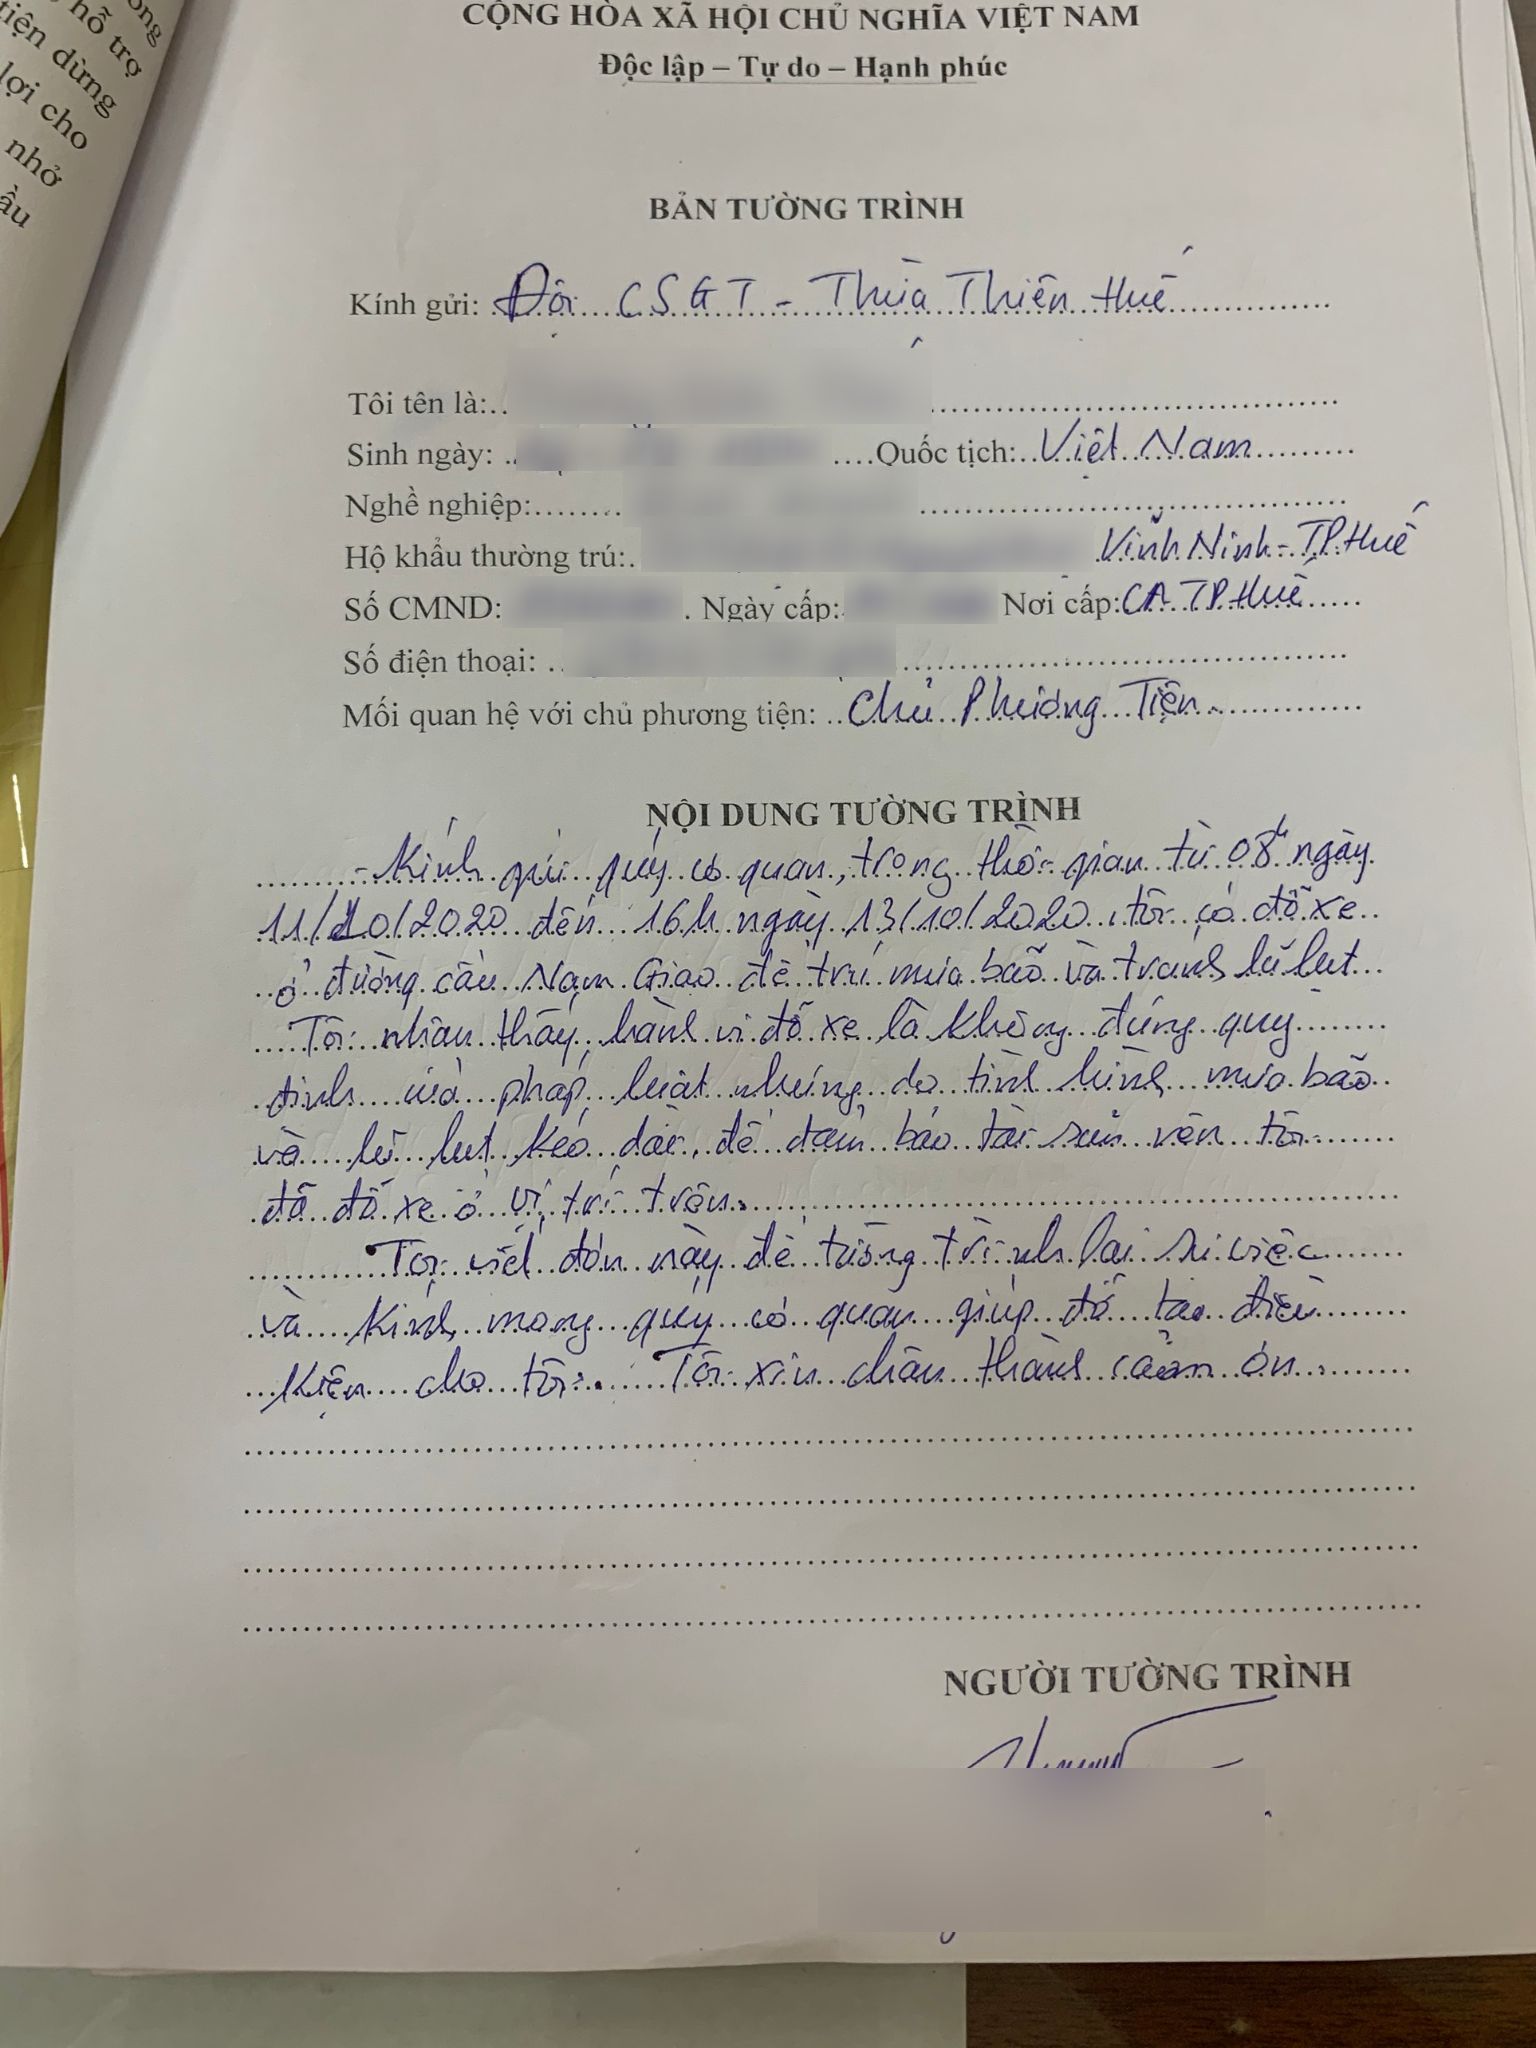 ong
hỗ trợ
tiện dừng
lợi cho
nhở
ầu
CỘNG HÒA XÃ HỘI CHỦ NGHĨA VIỆT NAM
Độc lập – Tự do – Hạnh phúc
BẢN TƯỜNG TRÌNH
Kính gửi: Đội CSGT - Thừa Thiên Huế
Tôi tên là:
Sinh ngày: Quốc tịch: Việt Nam
Nghề nghiệp:
Hộ khẩu thường trú: Vĩnh Ninh - TP Huế
Số CMND: Ngày cấp: Nơi cấp: CA TP Huế
Số điện thoại:
Mối quan hệ với chủ phương tiện: Chủ Phương Tiện
NỘI DUNG TƯỜNG TRÌNH
- Kính gửi quý cơ quan, trong thời gian từ 08h ngày
11/10/2020 đến 16h ngày 13/10/2020, tôi có đỗ xe
ở đường cầu Nam Giao để trú mưa bão và tránh lũ lụt
Tôi nhận thấy, hành vi đỗ xe là không đúng quy
định của pháp luật nhưng do tình hình mưa bão
và lũ lụt kéo dài, để đảm bảo tài sản nên tôi
đã đỗ xe ở vị trí trên.
Tôi viết đơn này để tường trình lại sự việc
và kính mong quý cơ quan giúp đỡ tạo điều
kiện cho tôi. Tôi xin chân thành cảm ơn.
NGƯỜI TƯỜNG TRÌNH